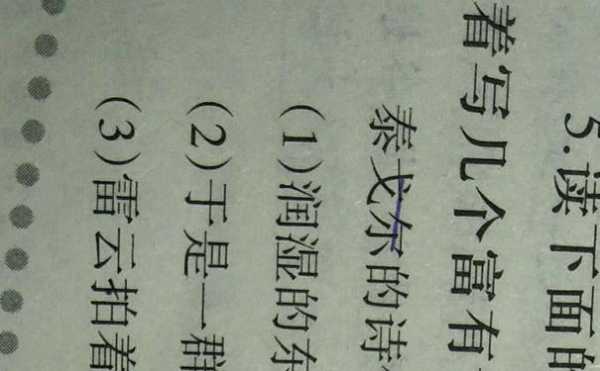 5.读下面的
着写几个富有
泰戈尔的诗
(1)润湿的东
(2)于是一群
(3)雷云拍着